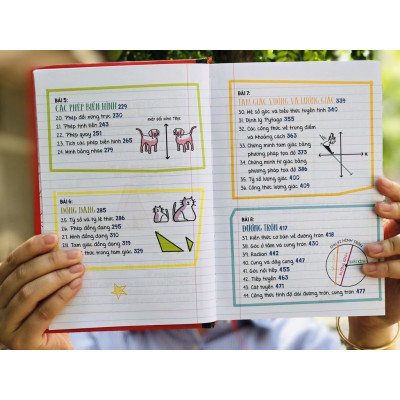 BÀI 5:
CÁC PHÉP BIẾN HÌNH 229
20. Phép đối xứng trục 230
21. Phép tịnh tiến 243
22. Phép quay 251
23. Tích các phép biến hình 265
24. Hình bằng nhau 279
BÀI 6:
ĐỒNG DẠNG 285
25. Tỷ số và tỷ lệ thức 286
26. Phép đồng dạng 295
27. Hình đồng dạng 310
28. Tam giác đồng dạng 319
thức trong tam giác 329
BÀI 7:
TAM GIÁC VUÔNG VÀ LƯỢNG GIÁC 339
30. Hệ số góc và biểu thức tuyến tính 340
31. Định lý Pytago 355
32. Các công thức về trung điểm
và khoảng cách 363
33. Chứng minh tam giác bằng
phương pháp tọa độ 373
34. Chứng minh tứ giác bằng
phương pháp tọa độ 386
35. Tỷ số lượng giác 400
36. Công thức lượng giác 409
BÀI 8:
ĐƯỜNG TRÒN 417
37. Kiến thức cơ bản về đường tròn 418
38. Góc ở tâm và cung tròn 430
39. Radian 442
40. Cung và dây cung 447
41. Góc nội tiếp 455
42. Tiếp tuyến 463
43. Cát tuyến 471
44. Công thức tính độ dài đường tròn, cung tròn 477